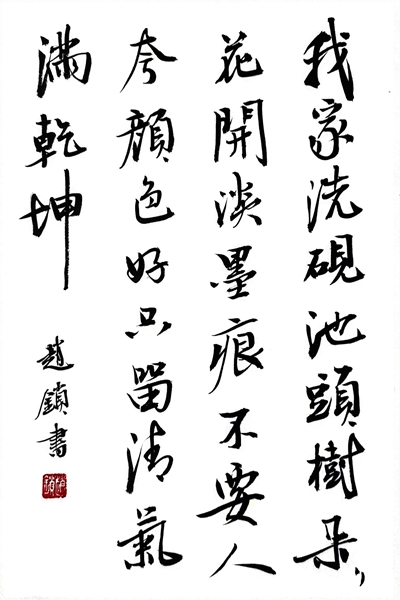 我家洗硯池頭樹朵々
花開淡墨痕不要人
夸顏色好只留清氣
滿乾坤
趙鎖書